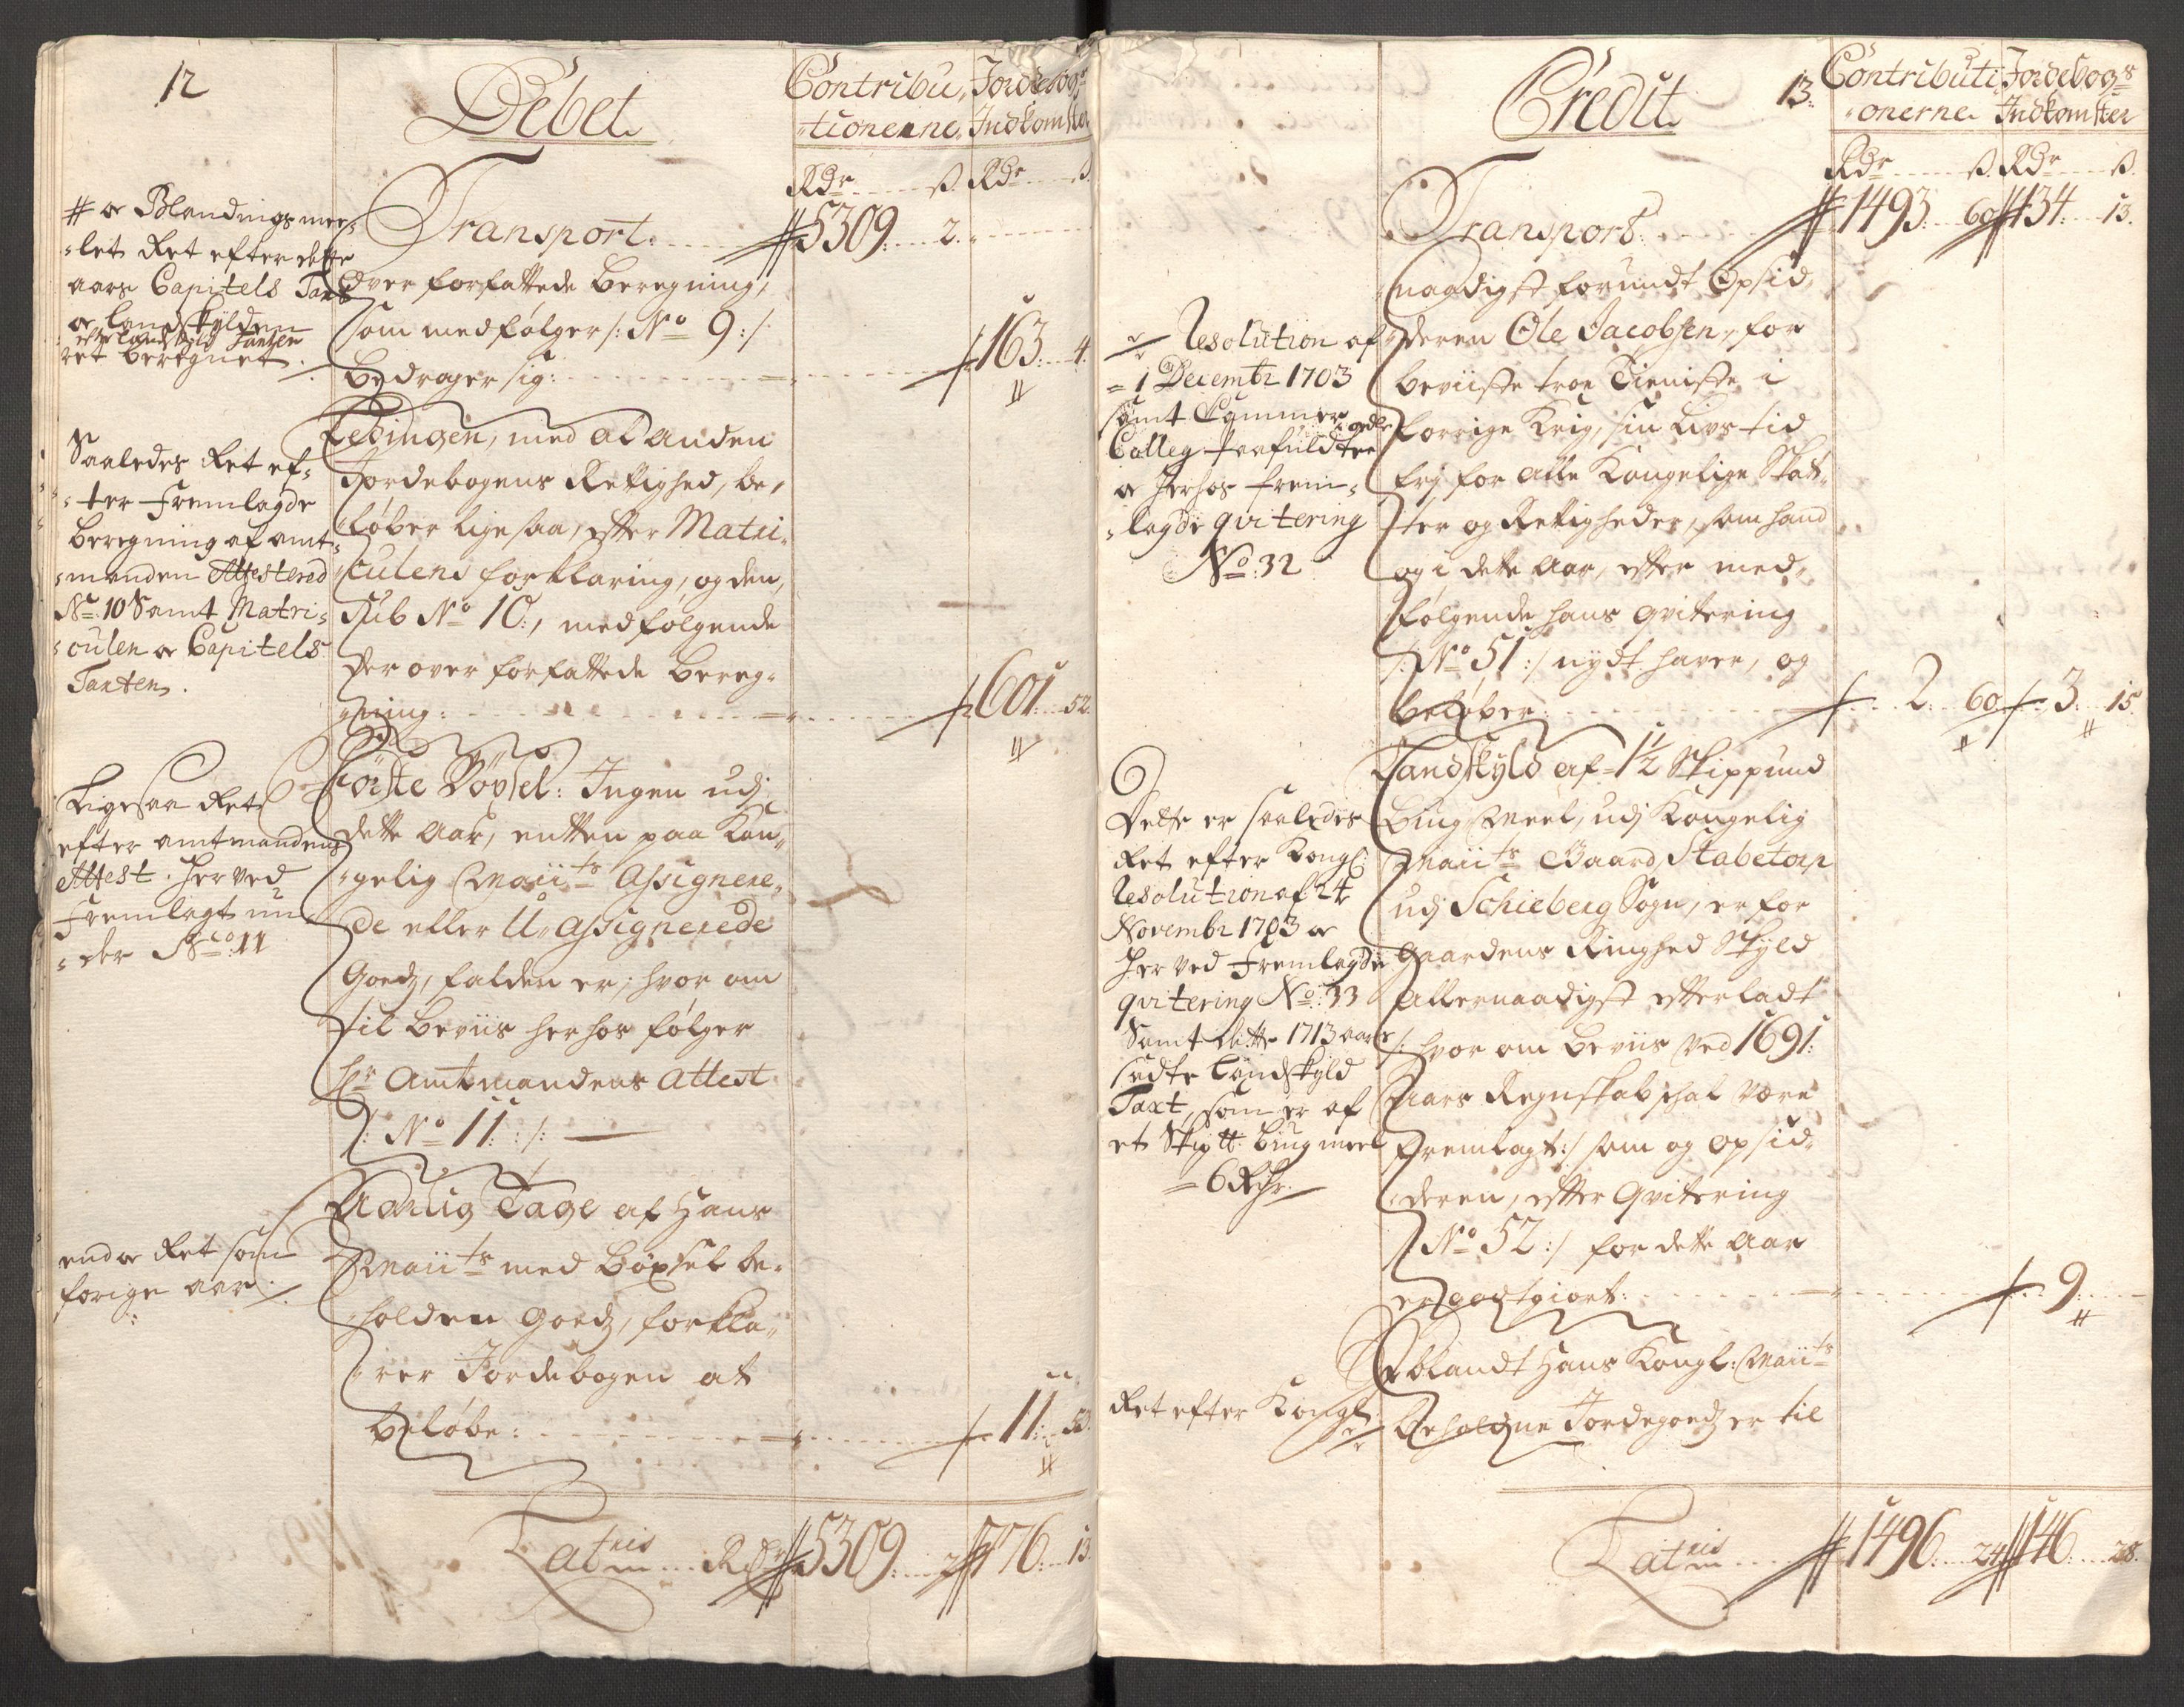 12
Debet
Contribu„
„tionerne
Jordebogs
Indkomster
Rdr ß. Rdr ß.
# er Blandings mee„
„let Ret efter dette
aars Capitels Taxt
er landskylden
ret beregnet.
Transport: 5309: 2.
over forfattede beregning,
som medfølger /: No 9 :/
bedrager sig: 163: 4.
Saaledes Ret ef„
„ter fremlagde
beregning af amt„
„manden Attestered
No 10 Samt Matri„
„culen er Capitels
Taxten.
Ledingen, med al anden
Jordebogens Rettighed, be„
„løber ligesaa, efter Matri„
„culens forklaring, og den,
Sub No 10:, medfølgende
der over forfattede bereg„
„ning: 601: 52.
Ligesaa Ret
efter amtmandens
Attest. her ved
fremlagt un„
„der No: 11
Første Bøxsel: Ingen udj
dette Aar, entten paa Kon„
„gelig Maiits Assignere„
de eller U-assignerede
Goedz, falden er; hvor om
til beviis herhos følger
Hr Amtmandens Attest
/: No 11 :/:
end er Ret som
forige aar
Aarlig Tage af Hans
Maiits med bøxsel be„
„holden Goedz, forkla„
„rer Jordebogen at
beløbe: 11: 53.
Latris Rdr 5309: 2 776: 13.
13:
Credit
Contributi„
„onerne
Jordebogs
Indkomster
Rdr ß. Rdr ß.
Transport: 1493: 60 134: 13.
Resolution af
1 Decembr 1703
samt Cammer
Colleg
er herhos frem„
„lagde qvitering
No: 32
naadigst forundt Opsid„
„deren Ole Jacobsen, for
beviiste troe Tieniste i
forrige Krig, sin Livs tid
frj for alle Kongelige Skat„
„ter og Rettigheder, som hand
og i dette Aar, efter med„
„følgende hans qvitering
/: No 51 :/ nydt haver, og
beløber: 2: 60 3: 15.
Dette er saaledes
Ret efter Kongl:
Resolution af 24
Novembr 1703 er
her ved fremlagde
qvitering No: 33
Samt dette 1713 aars
sadte Landskyld
Taxt, som er af
et Skip tt: biug meel
6 Rdr.
Landskyld af 1½ Skippund
biug Meel, udj Kongelig
Maiits Gaard Stabetorp
udj Schieberg Sogn, er for
Gaardens Ringhed Skyld
allernaadigst efterladt
/: hvor om beviis ved 1691:
Aars Regnskab skal være
fremlagt :/ som og opsid„
„deren, efter Qvitering
/: No 52 :/ for dette Aar
er godtgiort: 9:
Ret efter Kongl:
Iblandt Hans Kongl: Maiits
beholdne Jordegoedz er til
Latris 1496: 24 146: 28.